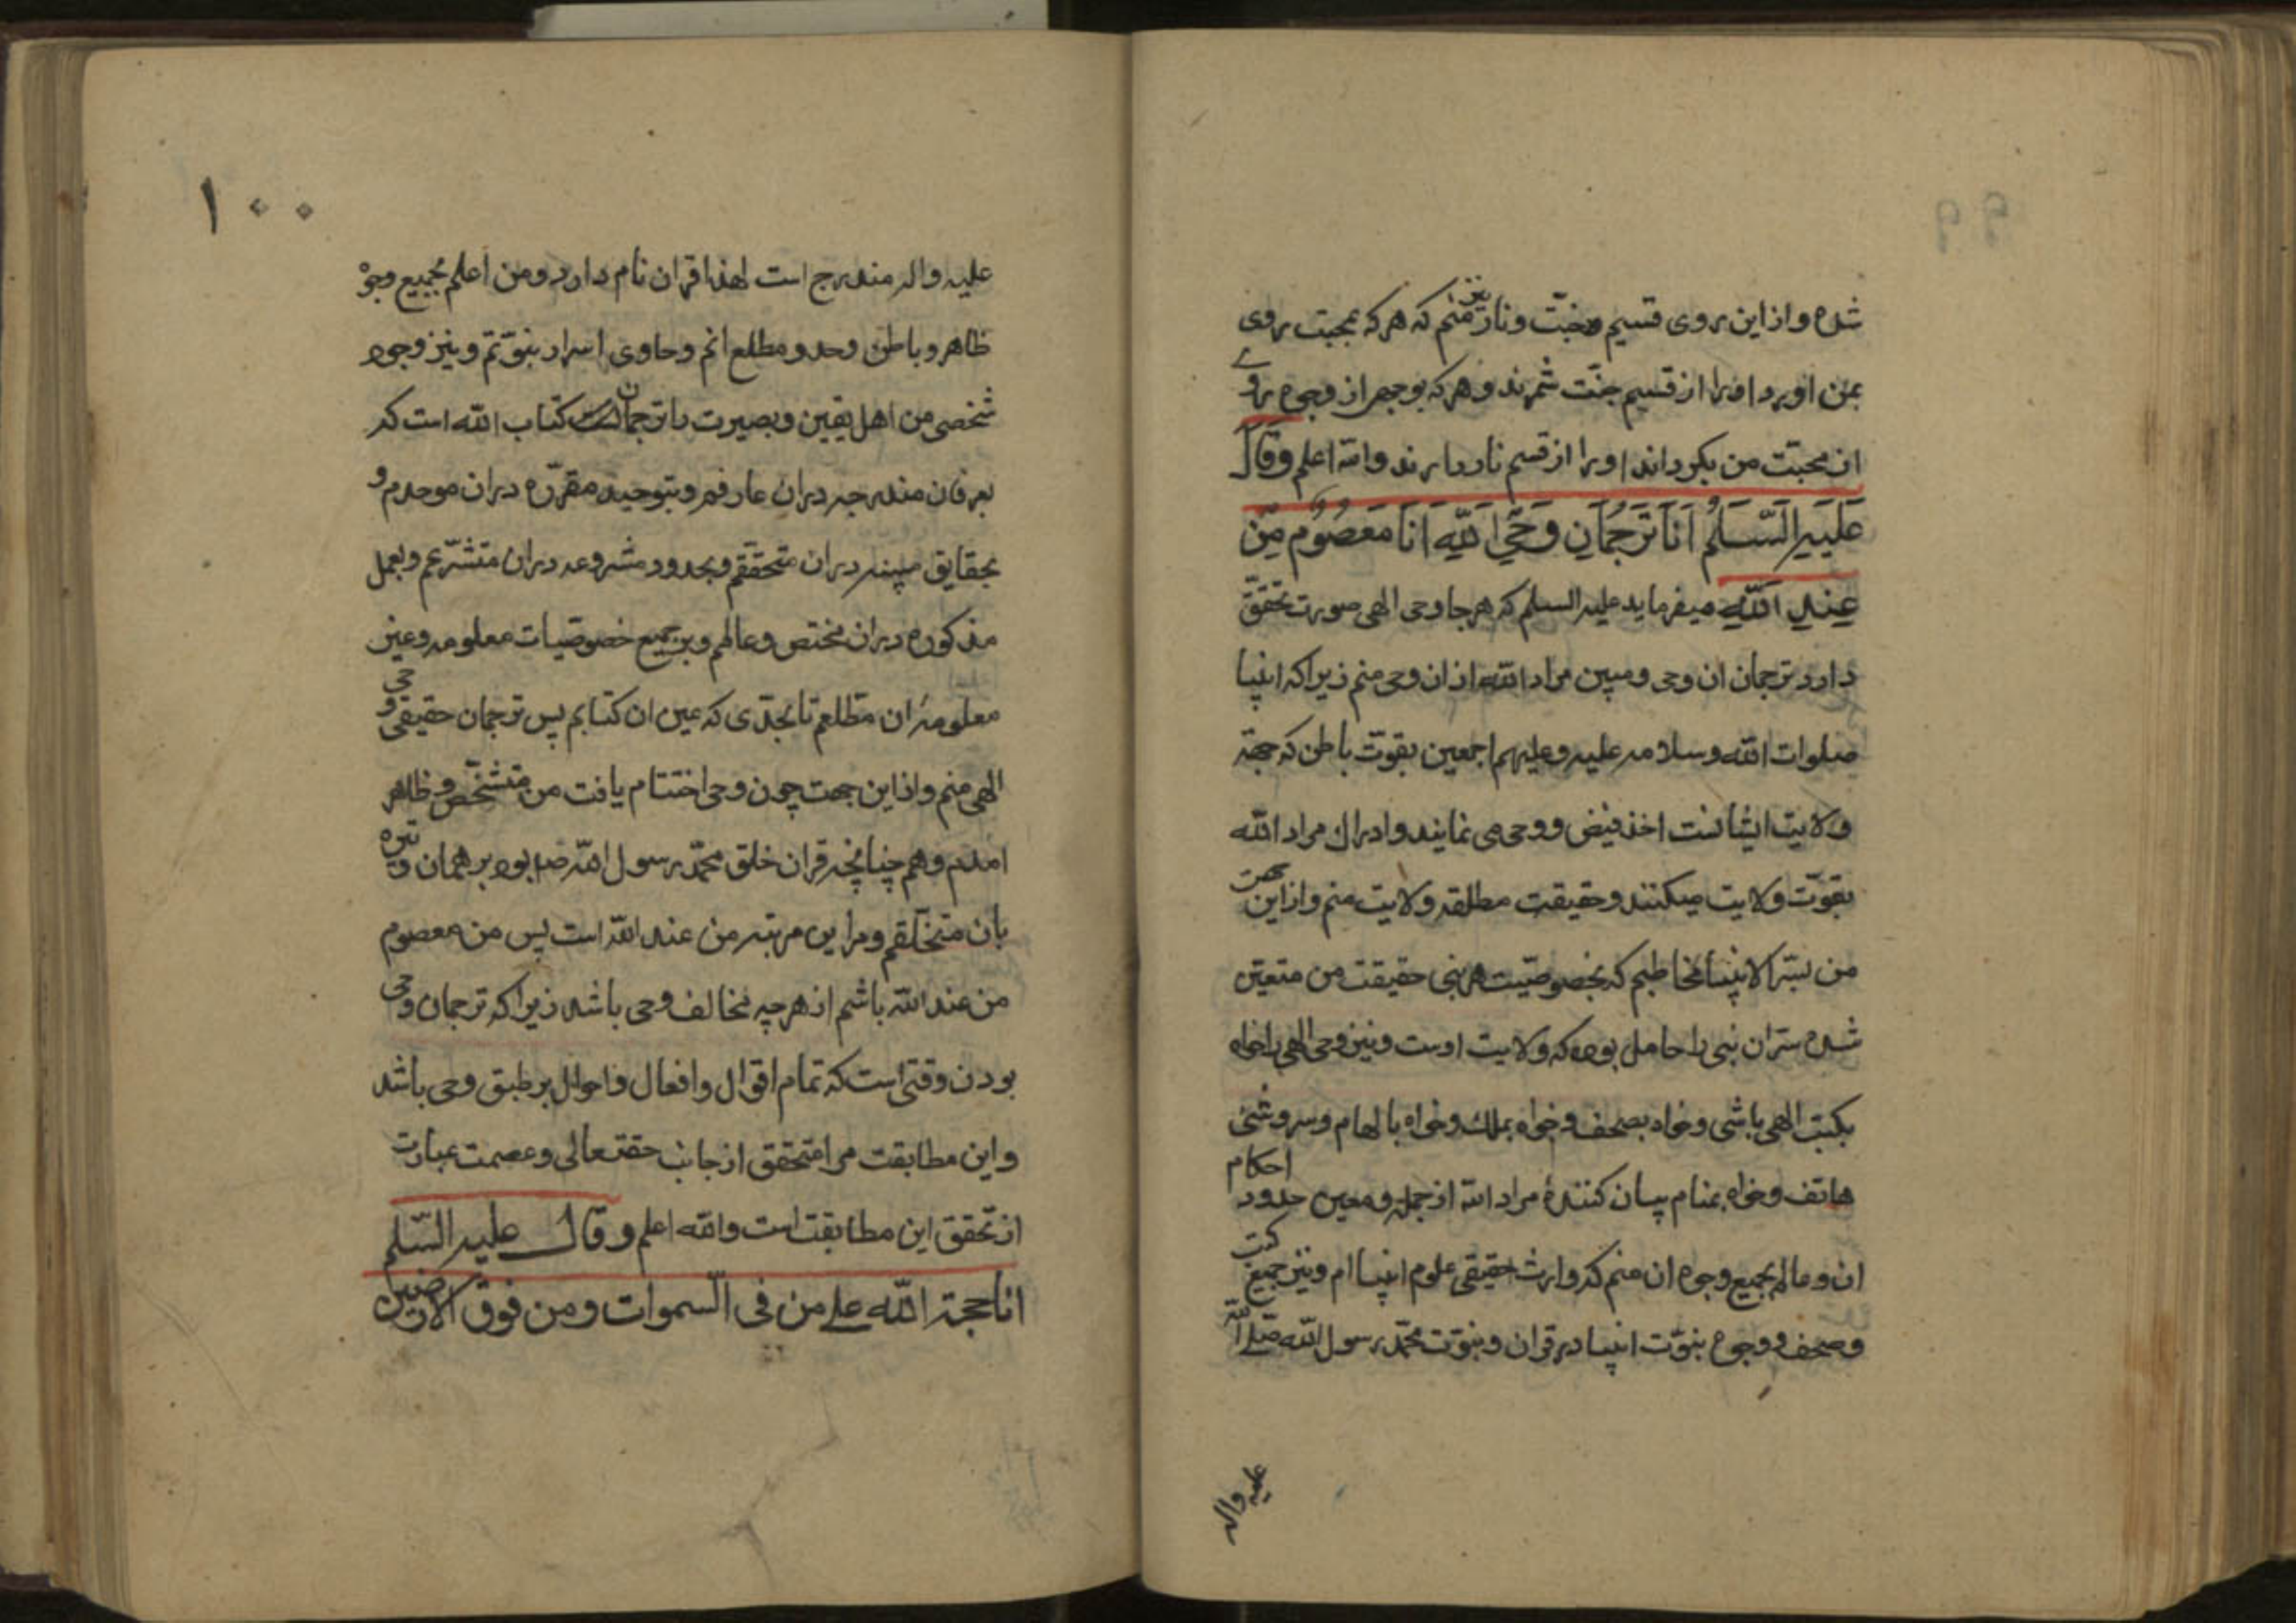 شده و از این روی قسیم جنّت و نار نیز منم که هر که بمحبت روی
بمن اورد او را از قسیم جنّت شمرند و هر که بوجهی از وجوه روی
از محبّت من بگرداند او را از قسم نار دارند والله اعلم وقال
عَلَیهِ السَّلمُ اَنَا تَرجُمانِ وَحَیِ اللّهِ اَنَا مَعصُومٌ مِن
عِندِ اللّهِ میفرماید علیه السلم که هر جا وحی الهی صورت تحقّق
دارد ترجمان ان وحی و مبین مراد الله از ان وحی منم زیرا که انبیا
صلوات الله وسلامه علیه وعلیهم اجمعین بقوّت باطن که جهة
ولایت ایشانست اخذ فیض و وحی می نمایند و ادراک مراد الله
بقوّت ولایت میکنند و حقیقت مطلقه ولایت منم و از این جهت
من بسرّ الانبیا مخاطبم که بخصوصیّت هر نبی حقیقت من متعیّن
شده سرّ ان نبی را حامل بوده که ولایت اوست و نیز وحی الهی را خواه
بکتب الهی باشی و خواه بصحف و خواه بملک و خواه بالهام و سروشی
هاتف و خواه بمنام بیان کنندهٔ مراد الله از جمله و معین حدود احکام
ان و عالم بجمیع وجوه ان منم که وارث حقیقی علوم انبیاام و نیز جمیع کتب
وصحف و وجوه نبوّت انبیا در قران و نبوّت محمّد رسول الله صلی الله
علیه واله
۱۰۰
علیه واله مندرج است لهذا قران نام دارد و من اعلم بجمیع وجوه
ظاهر و باطن وحد و مطلع انم و حاوی اسرار نبوّتم و نیز وجود
شخصی من اهل یقین و بصیرت را ترجمان کتاب الله است که
بعرفان مندرجه در ان عارفم و بتوحید مقرّره در ان موحدم و
بحقایق مبینه در ان متحققم و بحدود مشروعه در ان متشرّعم و بعمل
مذکوره در ان مختص و عالم و بر جمیع خصوصیات معلومه و عین
معلومهٔ ان مطلعم تا بحدّی که عین ان کتابم پس ترجمان حقیقی وحی
الهی منم و از این جهت چون وحی اختتام یافت من متشخّص و ظاهر
امدم و هم چنانچه قران خلق محمّد رسول الله صلم بود بر همان وتیره
بان متخلّقم و مرا این مرتبه من عند الله است پس من معصوم
من عند الله باشم از هر چه مخالف وحی باشد زیرا که ترجمان وحی
بودن وقتی است که تمام اقوال و افعال و احوال بر طبق وحی باشد
و این مطابقت مرا متحقق از جانب حقتعالی و عصمت عبارت
از تحقق این مطابقت است والله اعلم وقال علیه السّلم
انا حجة الله علی من فی السموات ومن فوق الارضین